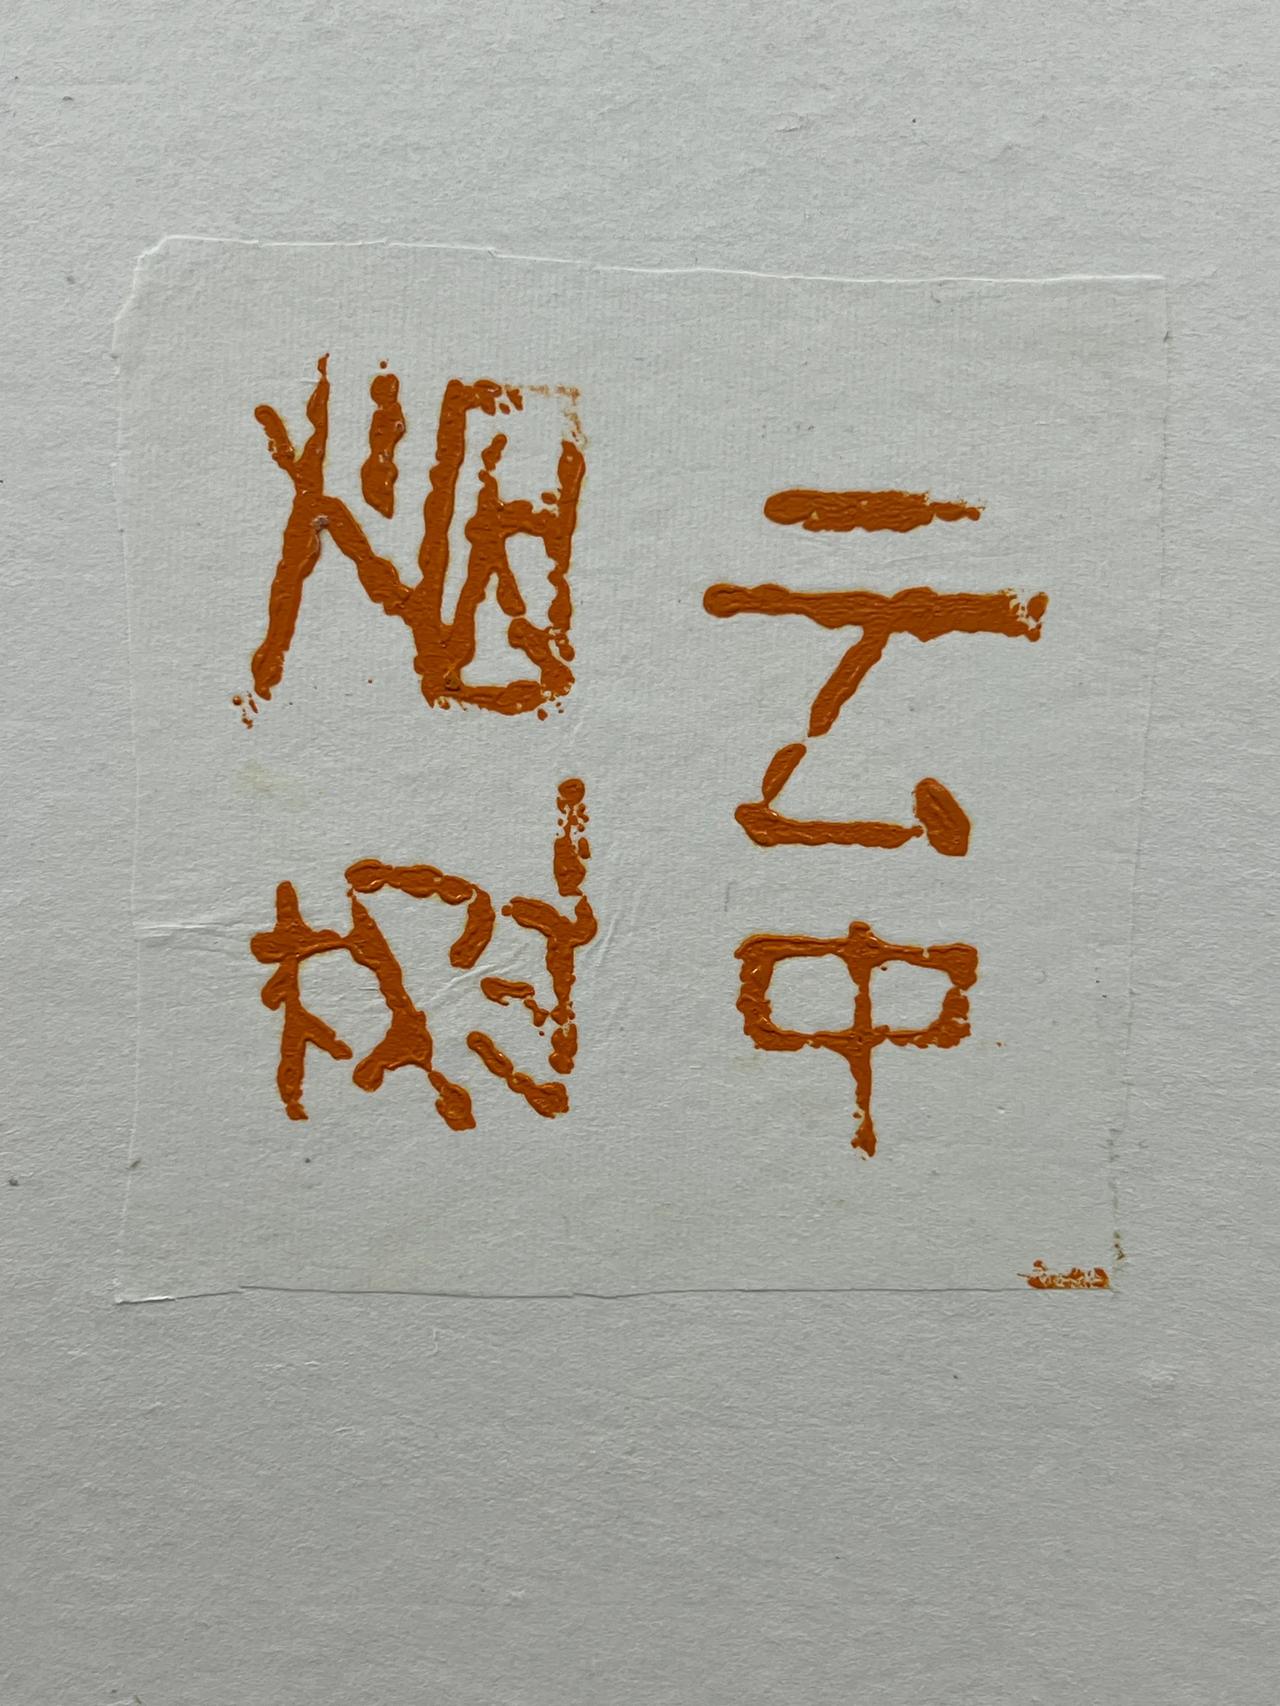 云中
烟树